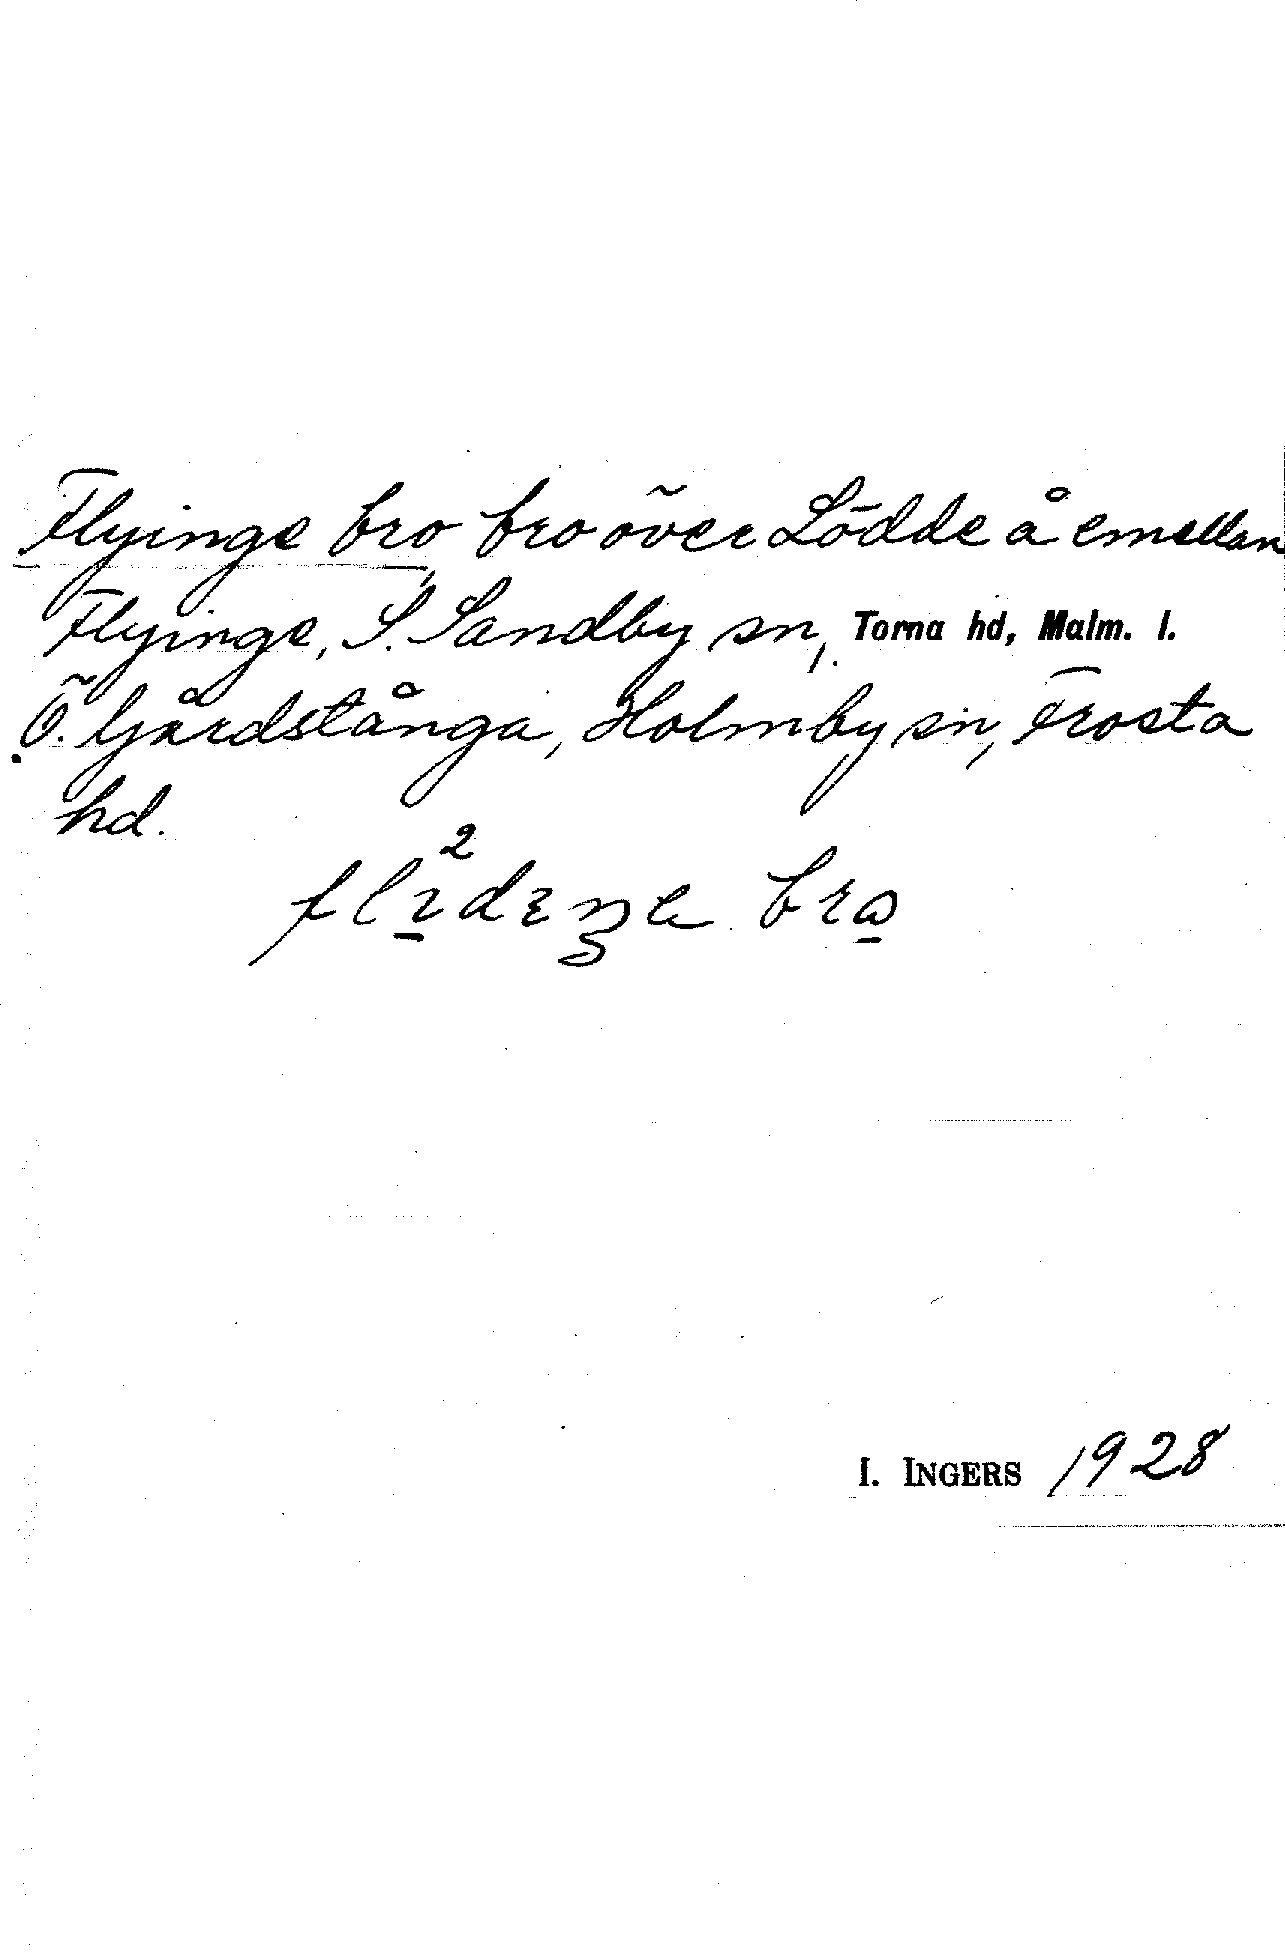 Flyinge bro, bro över Lödde å emellan
Flyinge, S. Sandby sn, Torna hd, Malm. l.
Ö. Gårdstånga, Holmby sn, Frosta
hd.
I. INGERS 1928